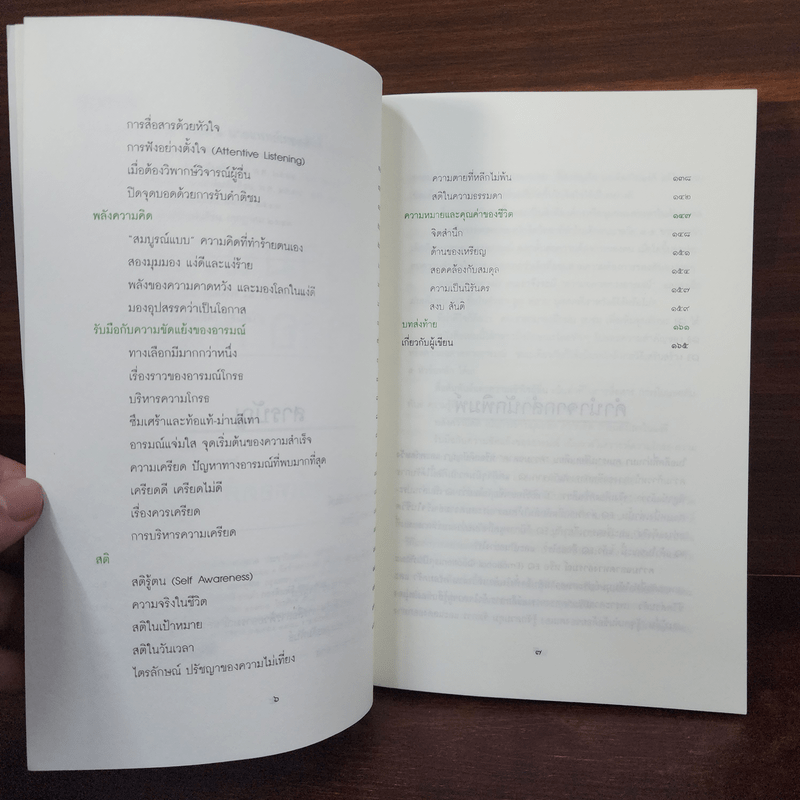 การสื่อสารด้วยหัวใจ
การฟังอย่างตั้งใจ (Attentive Listening)
เมื่อต้องวิพากษ์วิจารณ์ผู้อื่น
ปิดจุดบอดด้วยการรับคำติชม
พลังความคิด
"สมบูรณ์แบบ" ความคิดที่ทำร้ายตนเอง
สองมุมมอง แง่ดีและแง่ร้าย
พลังของความคาดหวัง และมองโลกในแง่ดี
มองอุปสรรคว่าเป็นโอกาส
รับมือกับความขัดแย้งของอารมณ์
ทางเลือกมีมากกว่าหนึ่ง
เรื่องราวของอารมณ์โกรธ
บริหารความโกรธ
ซึมเศร้าและท้อแท้-ม่านสีเทา
อารมณ์แจ่มใส จุดเริ่มต้นของความสำเร็จ
ความเครียด ปัญหาทางอารมณ์ที่พบมากที่สุด
เครียดดี เครียดไม่ดี
เรื่องควรเครียด
การบริหารความเครียด
สติ
สติรู้ตน (Self Awareness)
ความจริงในชีวิต
สติในเป้าหมาย
สติในวันเวลา
ไตรลักษณ์ ปรัชญาของความไม่เที่ยง
๖
ความตายที่หลีกไม่พ้น ๑๓๘
สติในความธรรมดา ๑๔๒
ความหมายและคุณค่าของชีวิต ๑๔๗
จิตสำนึก ๑๔๘
ด้านของเหรียญ ๑๕๑
สอดคล้องกับสมดุล ๑๕๔
ความเป็นนิรันดร ๑๕๗
สงบ สันติ ๑๕๙
บทส่งท้าย ๑๖๑
เกี่ยวกับผู้เขียน ๑๖๕
๗